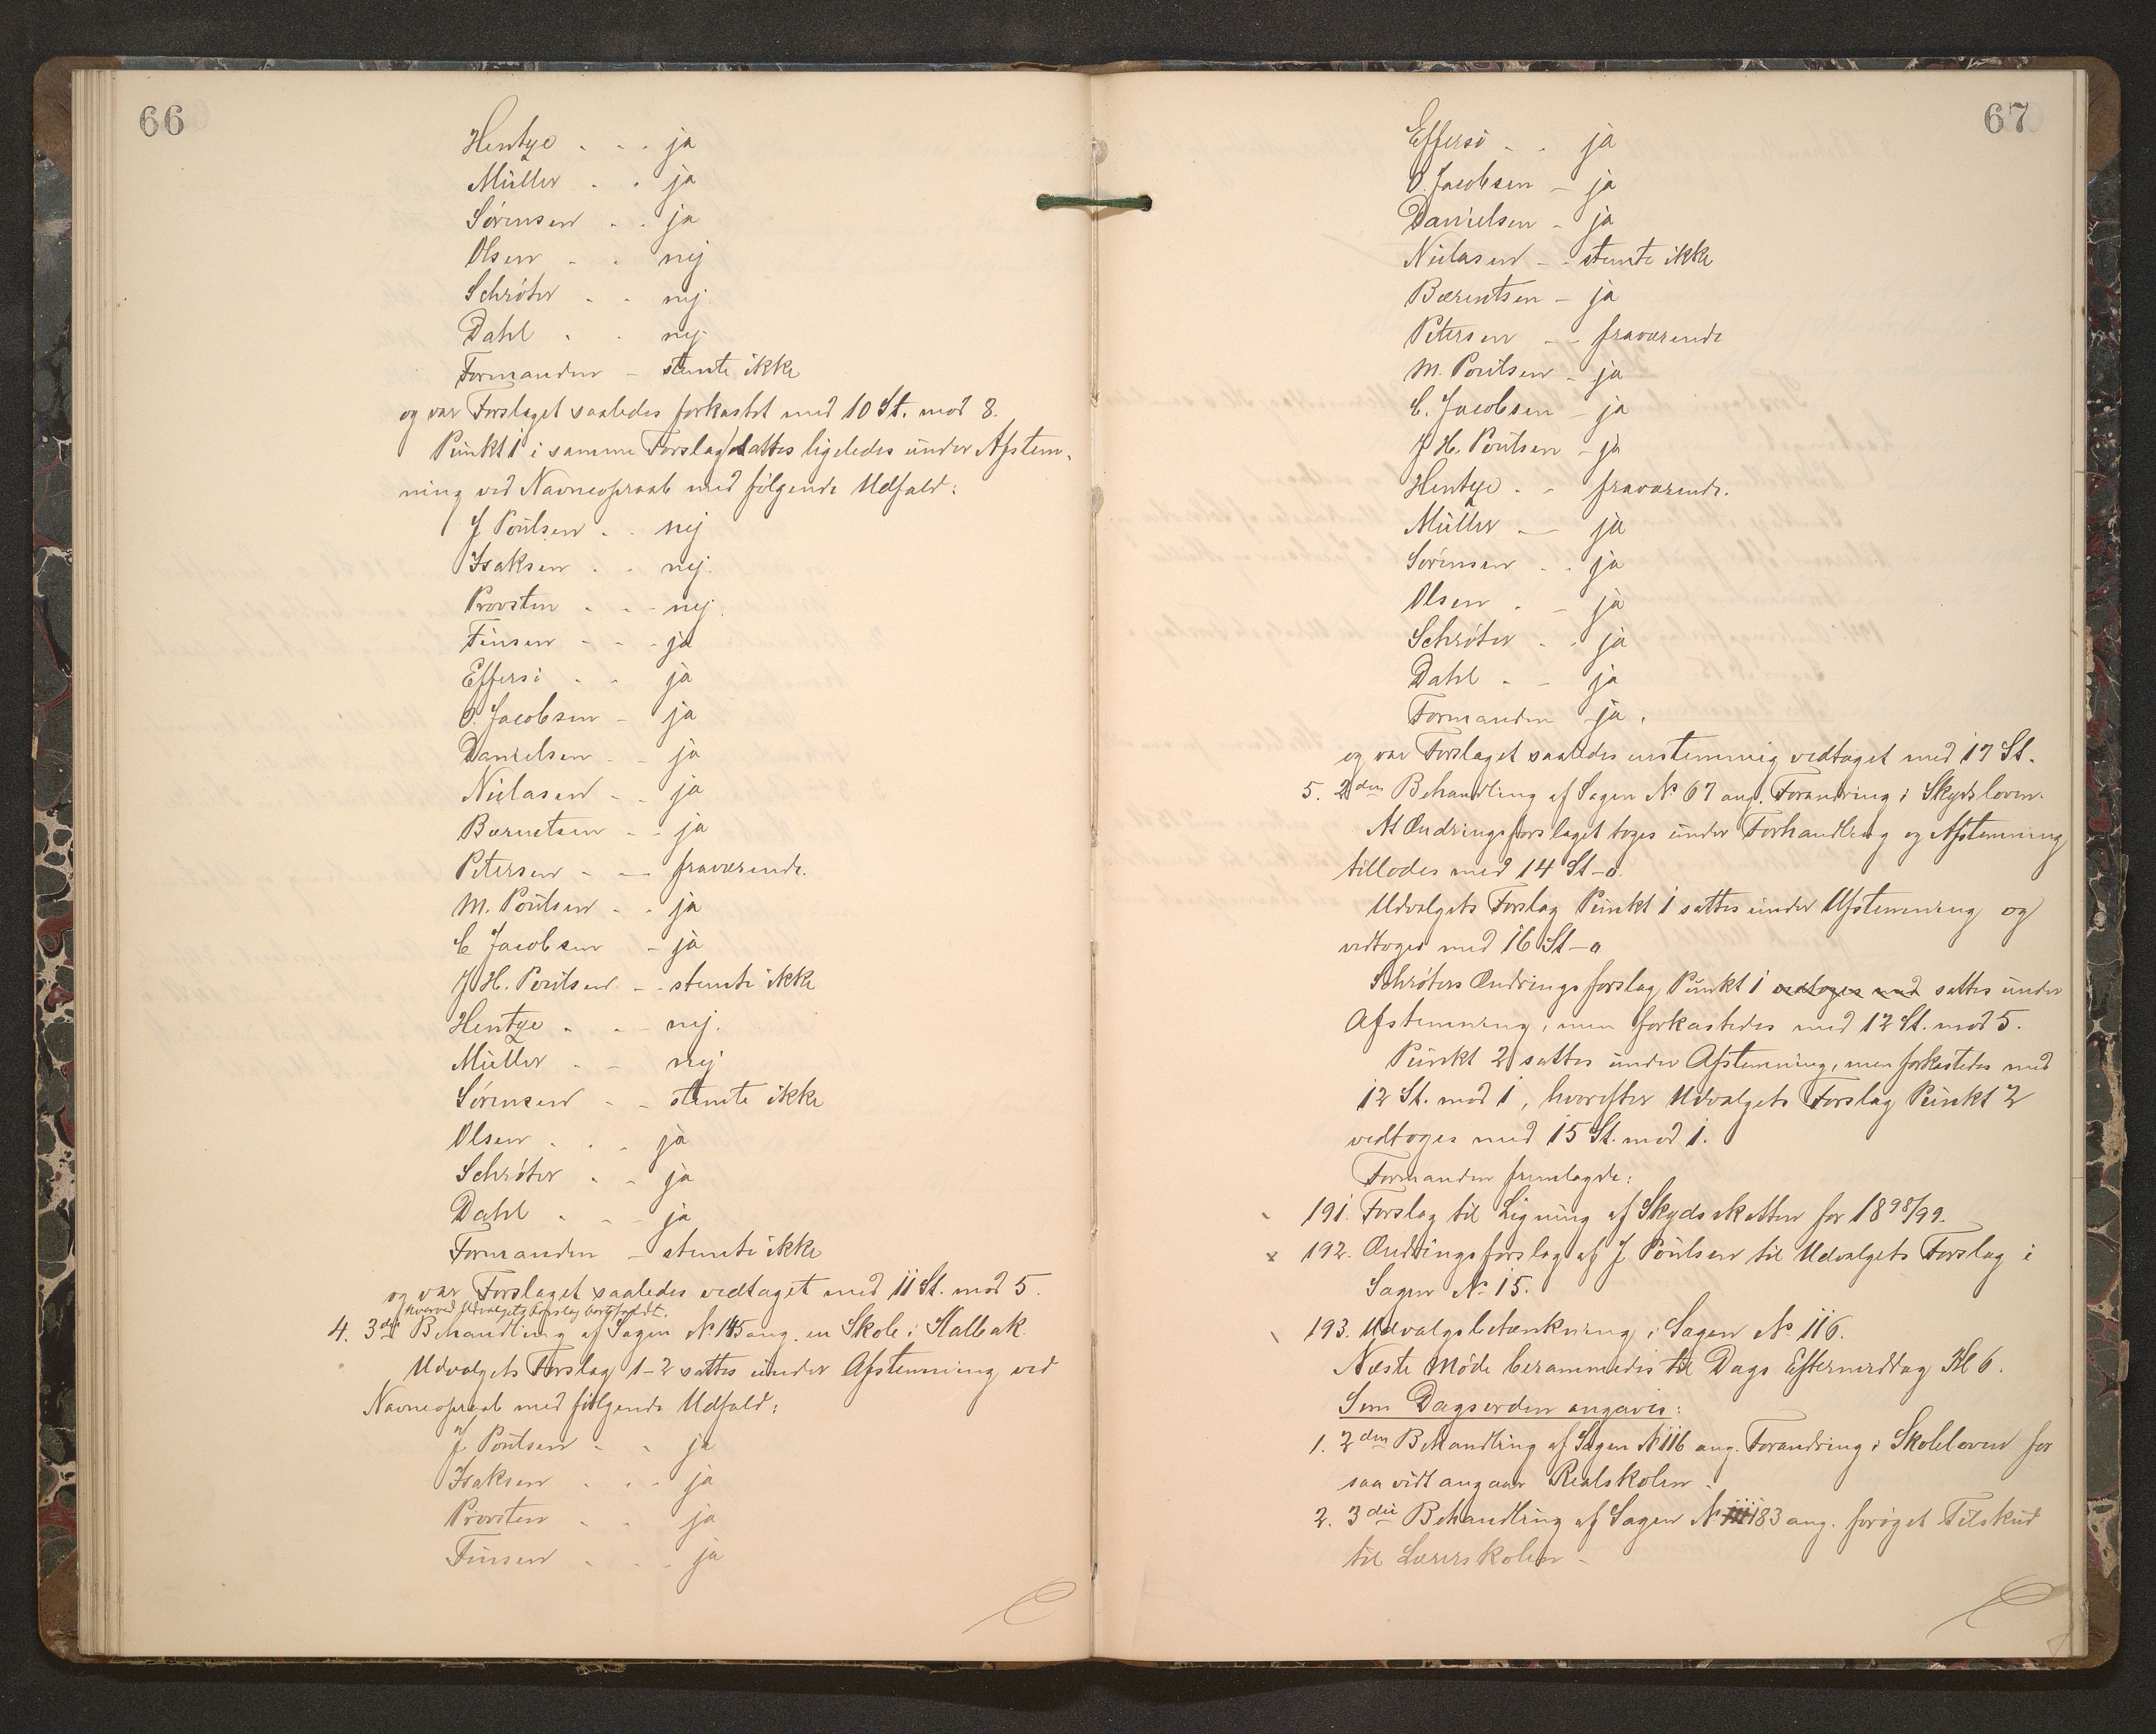 66
Hentze - - - ja
Müller - - ja
Sørensen - - ja
Olsen - - nej
Schrøter - - nej
Dahl - - nej
Formanden - stemte ikke
og var Forslaget saaledes forkastet med 10 St. mod 8.
Punkt 1 i samme Forslag sattes ligeledes under Afstem-
ning ved Navneopraab med følgende Udfald:
J Poulsen - - nej
Isaksen - - nej.
Provsten - - - nej.
Finsen - - - ja
Effersø - - ja
O. Jacobsen - ja
Danielsen - - ja
Niclasen - - ja
Bærentsen - - ja
Petersen - - fraværende.
M. Poulsen - - ja
C Jacobsen - ja
J H. Poulsen - - stemte ikke
Hentze - - - nej.
Müller - - nej
Sørensen - - stemte ikke
Olsen - - - ja
Schrøter - - ja
Dahl - - - ja
Formanden - stemte ikke
og var Forslaget saaledes vedtaget med 11 St. mod 5.
hvorved Udvalgets Forslag bortfaldt.
4. 3die Behandling af Sagen No 145 ang. en Skole i Kalbak.
Udvalgets Forslag 1-2 sattes under Afstemning ved
Navneopraab med følgende Udfald:
J Poulsen - - ja
Isaksen - - - ja
Provsten - - ja
Finsen - - - ja
67
Effersø - - ja
O. Jacobsen - ja
Danielsen - ja
Niclasen - - stemte ikke
Bærentsen - ja
Petersen - - fraværende
M. Poulsen - ja
C. Jacobsen - ja
J H. Poulsen - ja
Hentze - - fraværende.
Müller - ja
Sørensen - - ja
Olsen - - ja
Schrøter - - ja
Dahl - - ja
Formanden ja.
og var Forslaget saaledes enstemmig vedtaget med 17 St.
5. 2den Behandling af Sagen No 67 ang. Forandring i Skydsloven.
At Ændringsforslaget toges under Forhandling og Afstemning
tillodes med 14 St-0.
Udvalgets Forslag Punkt 1 sattes under Afstemning og
vedtoges med 16 St-0
Schrøters Ændringsforslag Punkt 1 vedtoges med sattes under
Afstemning, men forkastedes med 12 St. mod 5.
Punkt 2 sattes under Afstemning, men forkastedes med
12 St. mod 1, hvorefter Udvalgets Forslag Punkt 2
vedtoges med 15 St. mod 1.
Formanden fremlagde:
191. Forslag til Ligning af Skydsskatten for 1898/99.
192. Ændringsforslag af J Poulsen til Udvalgets Forslag i
Sagen No 15.
193. Udvalgsbetænkning i Sagen No 116.
Næste Møde berammedes til Dags Eftermiddag Kl 6.
Som Dagsorden angaves:
1. 2den Behandling af Sagen No 116 ang. Forandring i Skoleloven for
saa vidt angaar Realskolen.
2. 3die Behandling af Sagen No 183 ang. forøget Tilskud
til Lærerskolen -